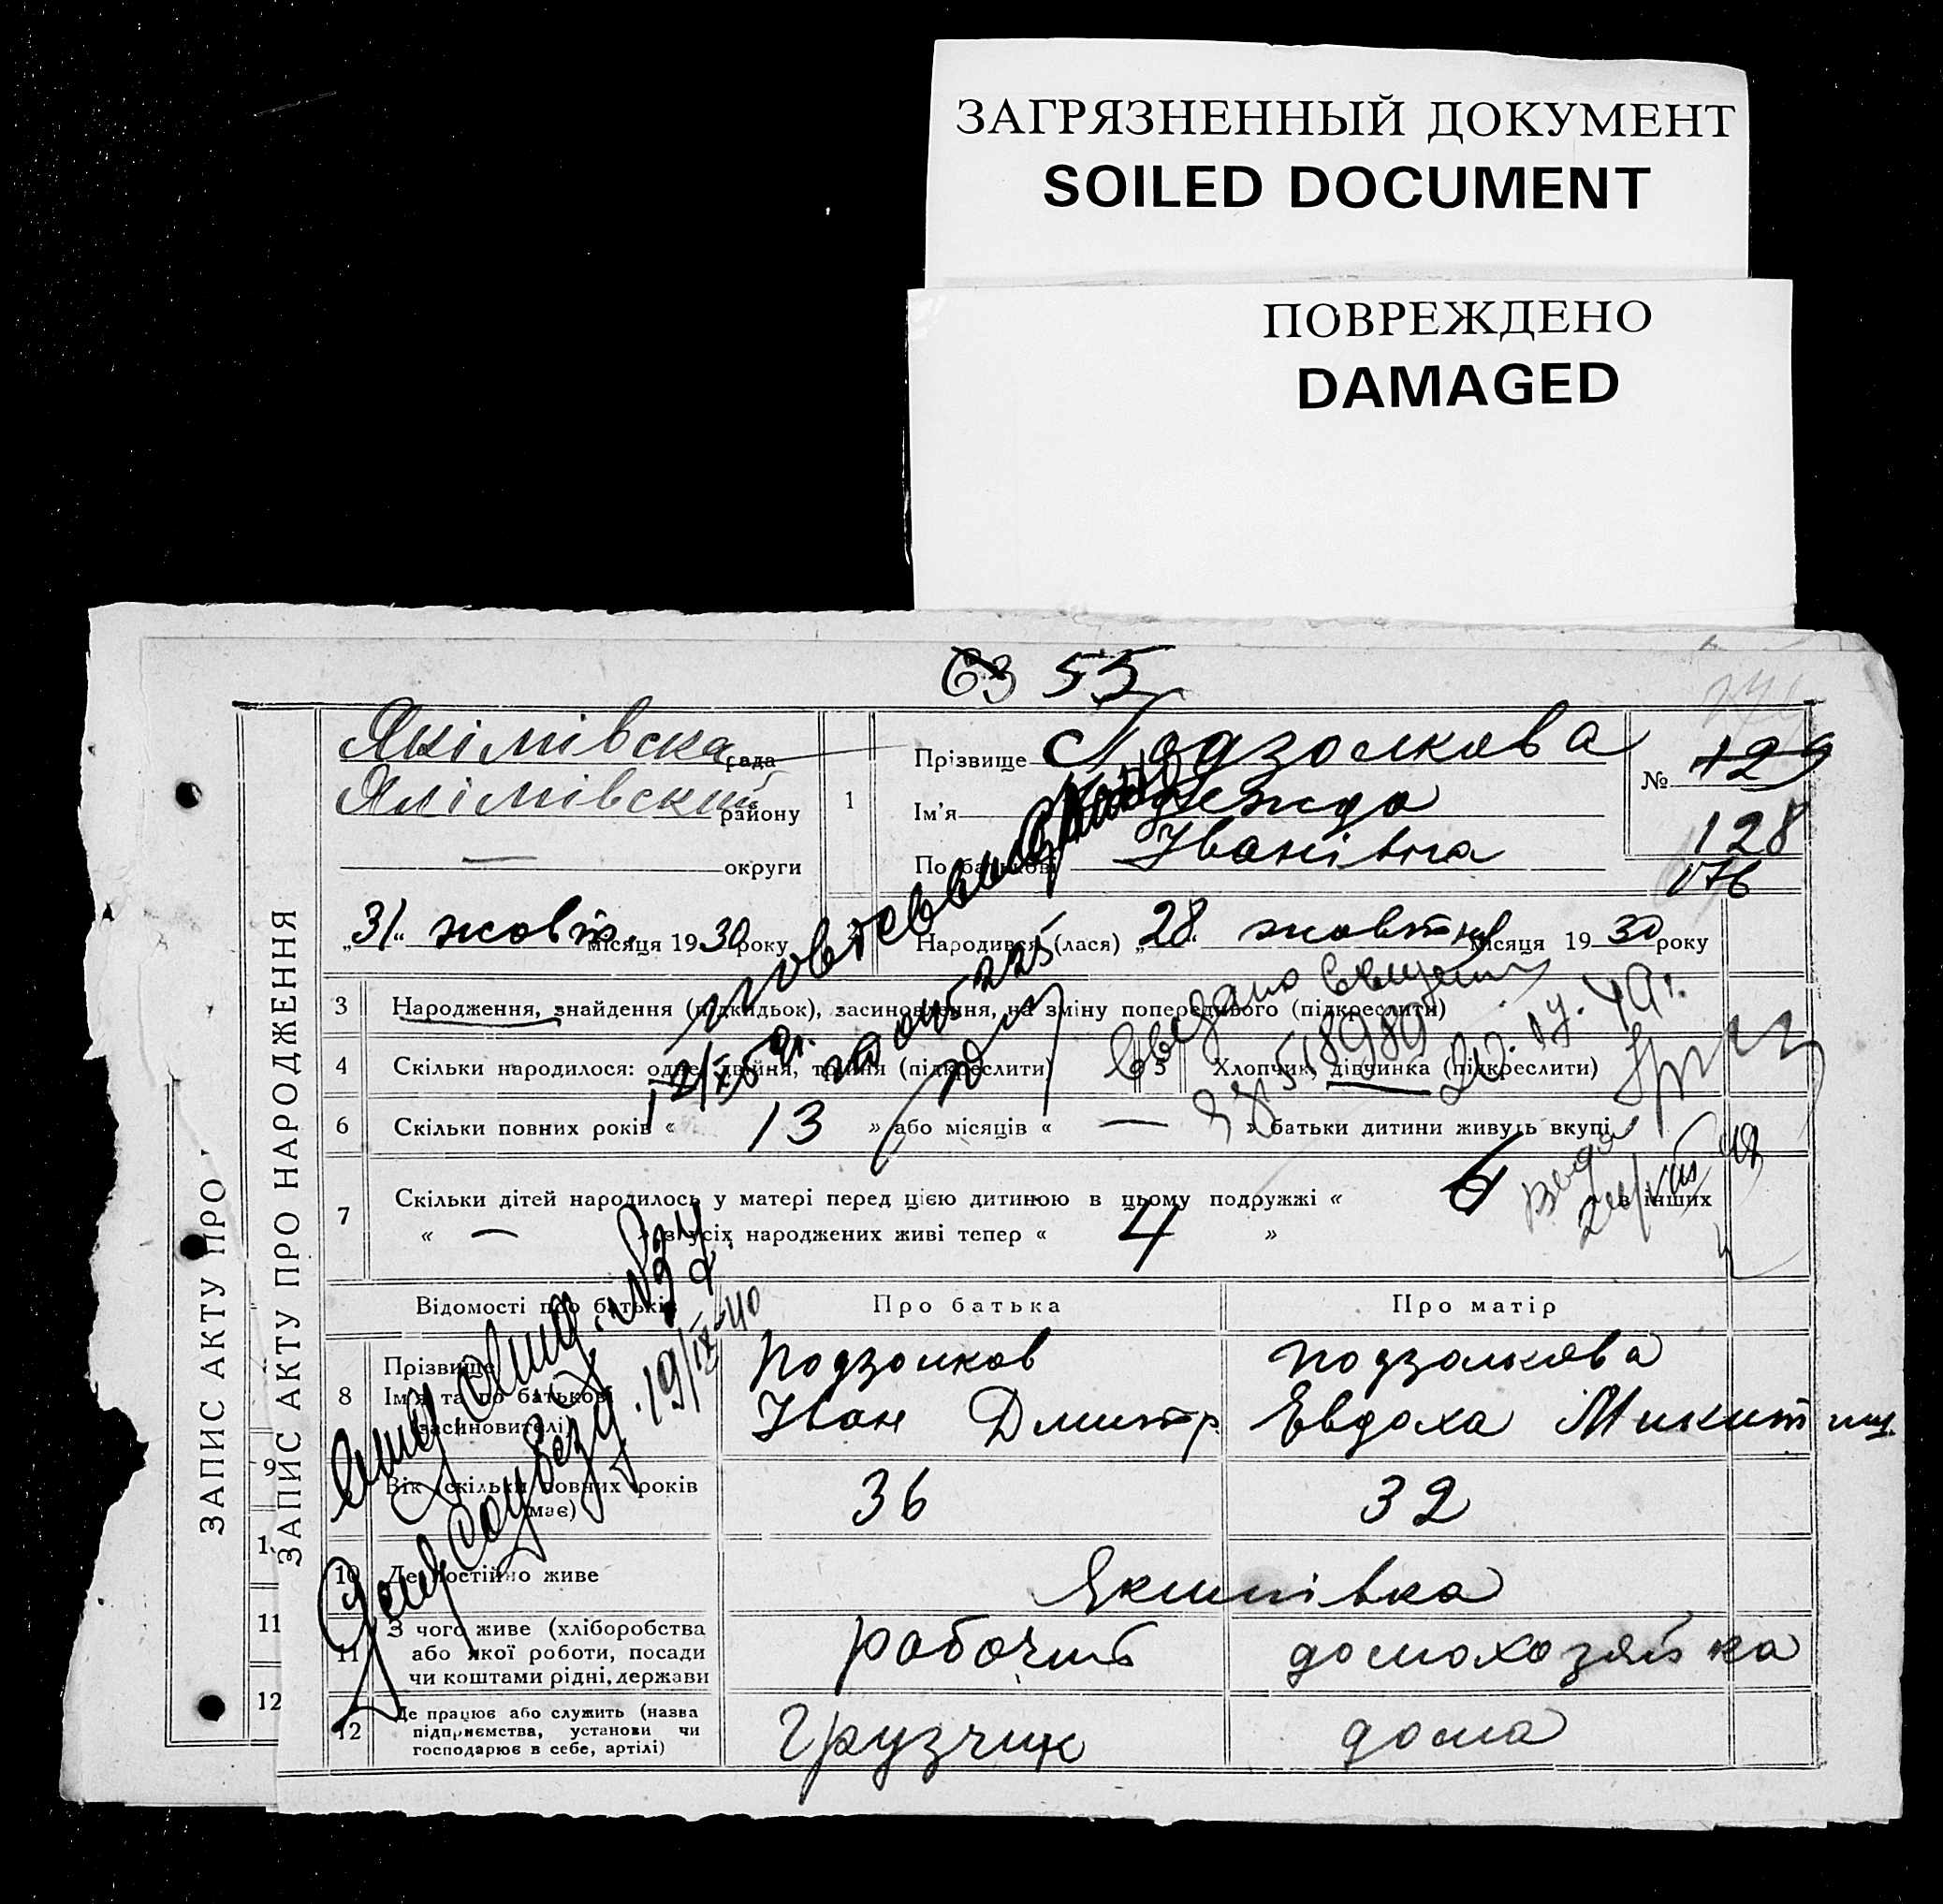 ЗАГРЯЗНЕННЫЙ ДОКУМЕНТ
SOILED DOCUMENT
ПОВРЕЖДЕНО
DAMAGED
63 55
ЗАПИС АКТУ ПРО
ЗАПИС АКТУ ПРО НАРОДЖЕННЯ
Якімівска рада
Якімівский району
— округи
1
Прізвище Подзолкова
Ім'я Надежда
По батькові Іванівна
№ 129
128
176
„31“ жовт. місяця 1930 року
Народився (лася) „28“ жовтня місяця 1930 року
3 Народження, знайдення (підкидьок), засиновлення, на зміну попереднього (підкреслити)
4 Скільки народилося: одне, двійня, трійня (підкреслити)
5 Хлопчик, дівчинка (підкреслити)
6 Скільки повних років « 13 » або місяців « — » батьки дитини живуть вкупі
7 Скільки дітей народилось у матері перед цією дитиною в цьому подружжі « 6 в інших
« — » з усіх народжених живі тепер « 4 »
Відомості про батьків
Про батька
Про матір
8 Прізвище
Ім'я та по батькові
(засиновителі)
Подзолков
Іван Дмитр.
Подзолкова
Евдоха Микит
9
Вік (скільки повних років має)
36
32
10 Де постійно живе
Якимівка
11 З чого живе (хліборобства
або якої роботи, посади
чи коштами рідні, держави
рабочий
домохозяйка
12 Де працює або служить (назва
підприємства, установи чи
господарює в себе, артілі)
Грузчик
дома
11
12
повт свид
225
12/XI 59г.
Выдано свидет
518989
20.IV.49г.
19/IX-40